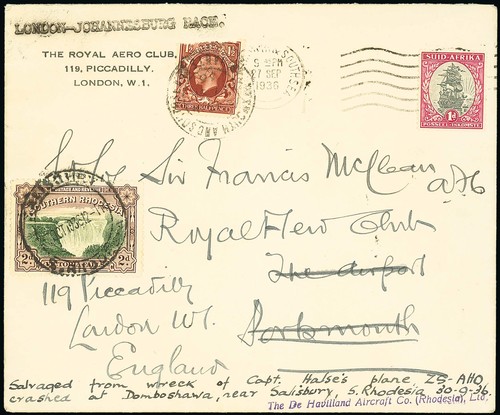 LONDON-JOHANNESBURG RACE.
THE ROYAL AERO CLUB,
119, PICCADILLY.
LONDON, W.1.
THREE HALFPENCE
27 SEP
1936
SUID-AFRIKA
1D
POSSEEL INKOMSTE
Sir Francis McClean
Royal Aero Club
The Airport
Portsmouth
119 Piccadilly
London W1.
England
SOUTHERN RHODESIA
2D 2D
Salvaged from wreck of Capt. Halse's plane, ZS-AHO,
crashed at Domboshawa, near Salisbury, S. Rhodesia 30-9-36
The De Havilland Aircraft Co. (Rhodesia), Ltd.